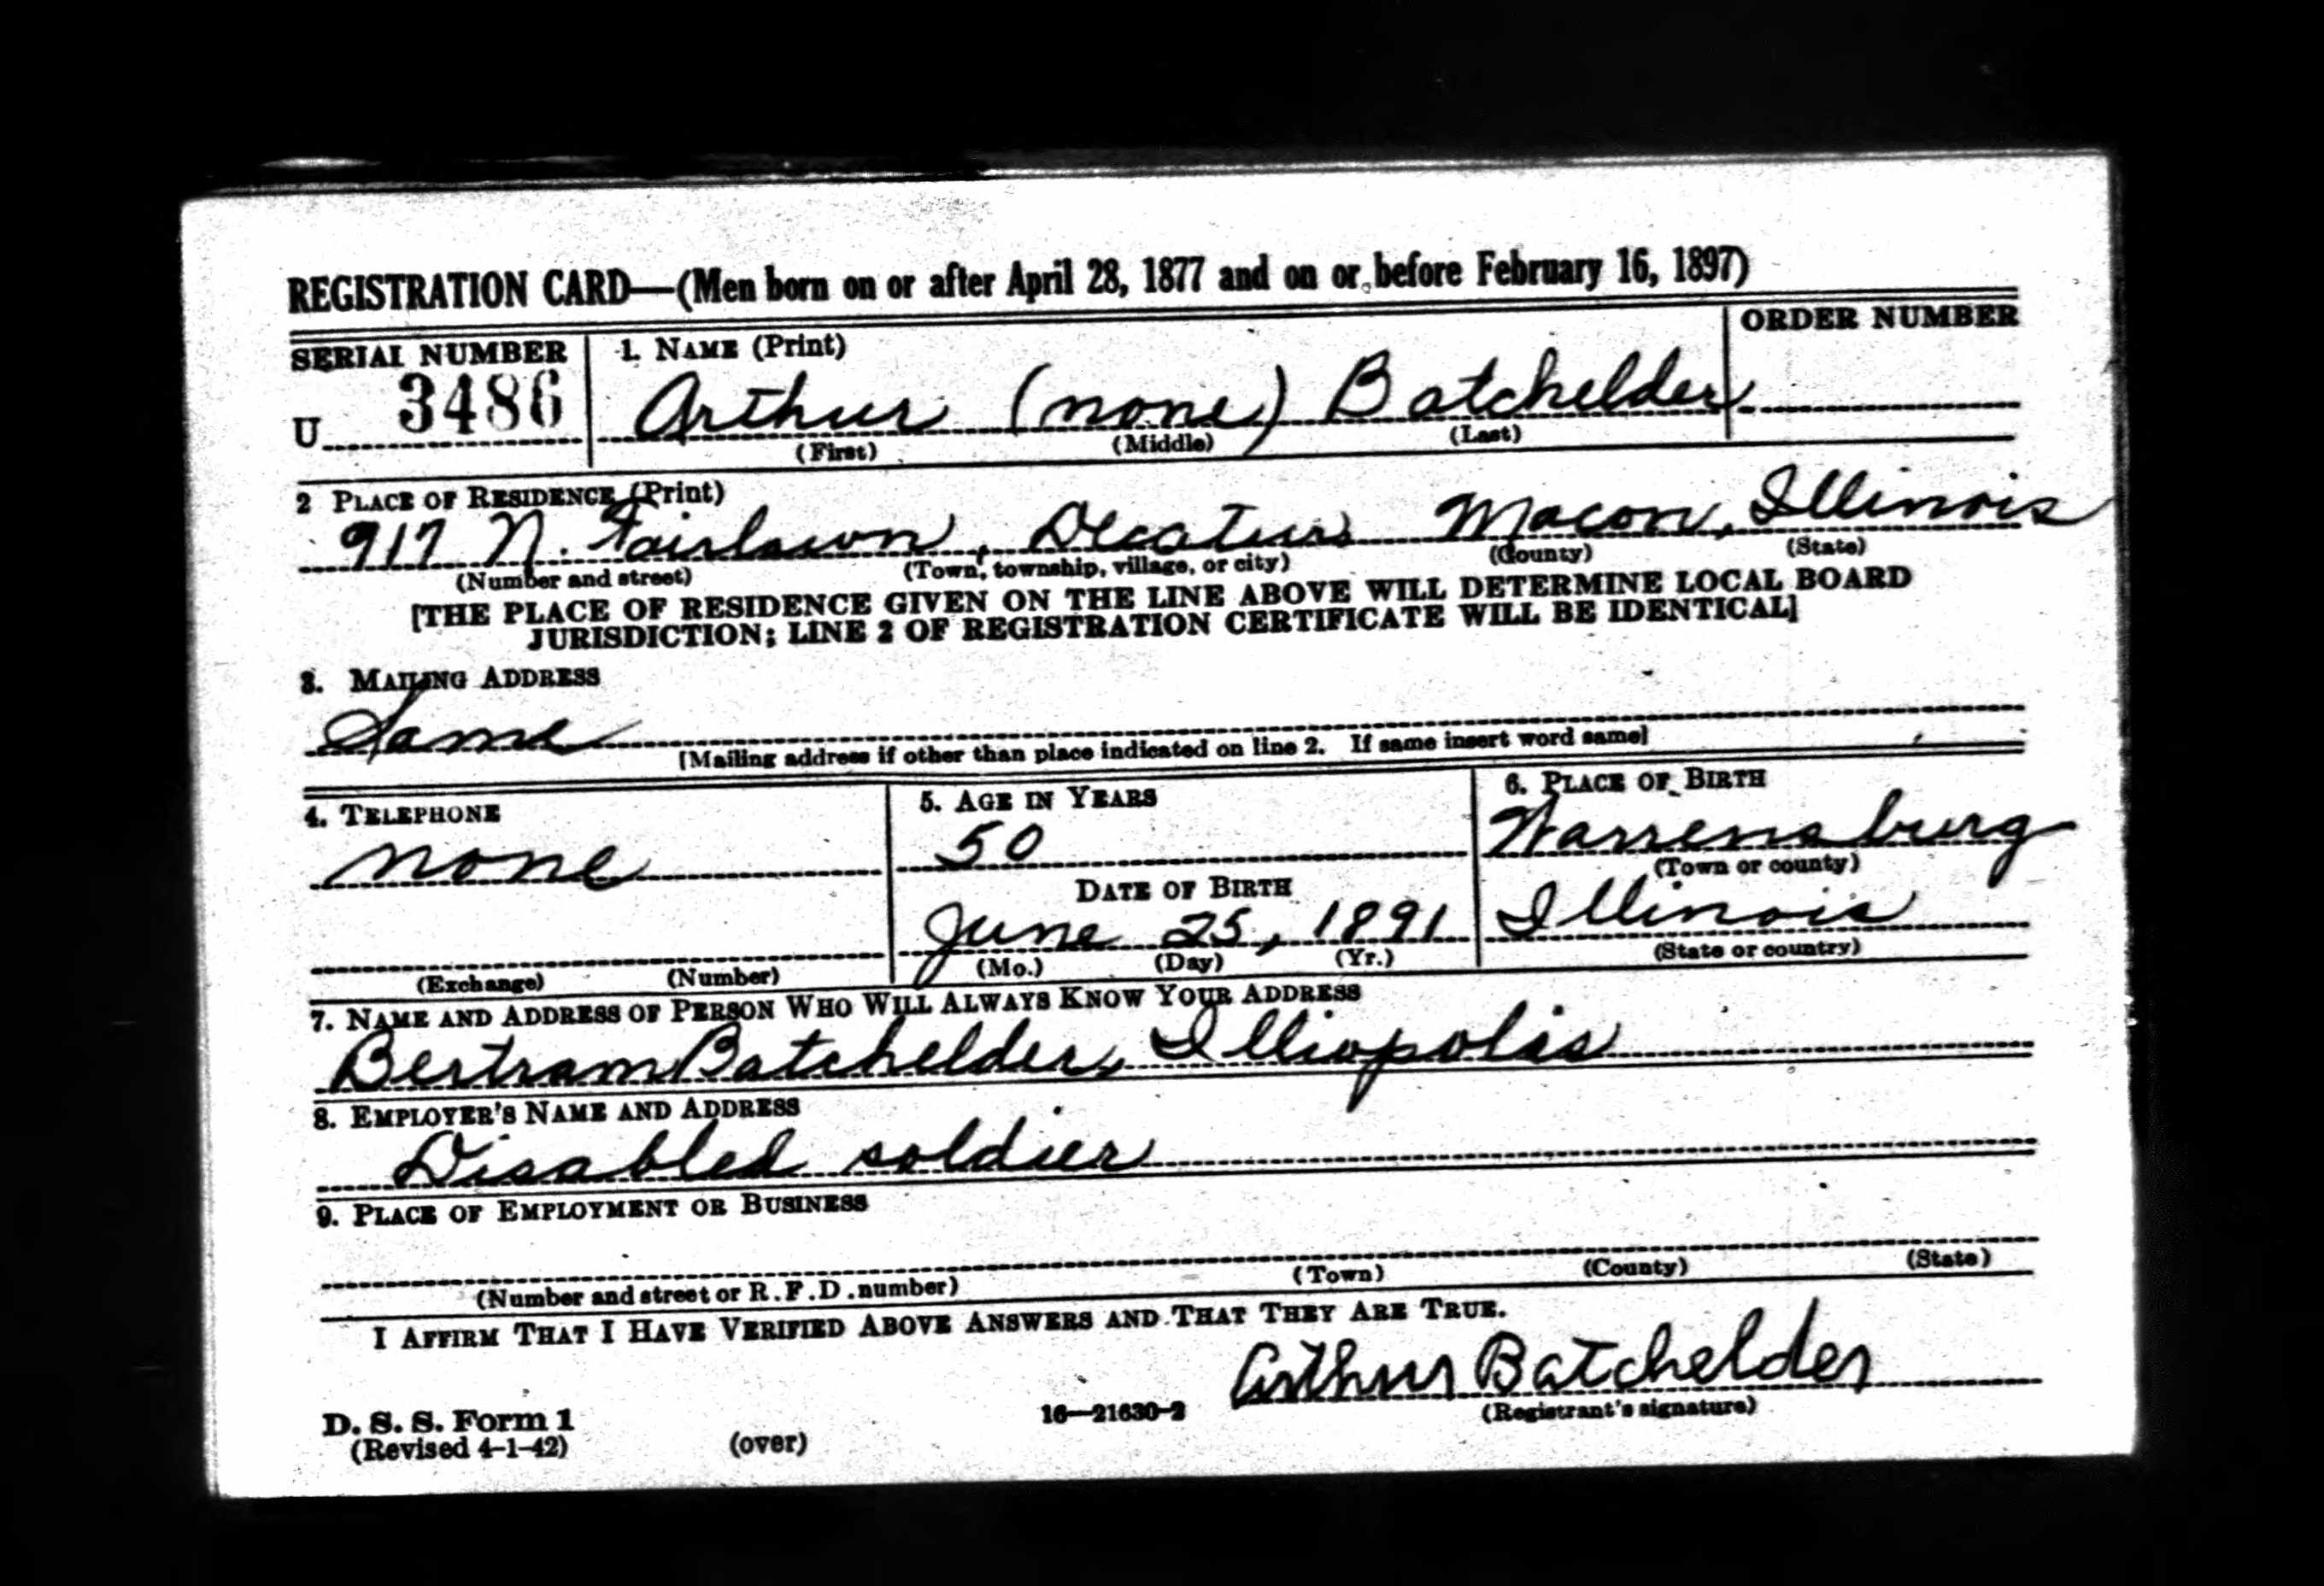 REGISTRATION CARD—(Men born on or after April 28, 1877 and on or before February 16, 1897)
SERIAL NUMBER 1. NAME (Print) ORDER NUMBER
U 3486 Arthur (none) Batchelder
(First) (Middle) (Last)
2 PLACE OF RESIDENCE (Print)
917 N. Fairlawn, Decatur Macon, Illinois
(Number and street) (Town, township, village, or city) (County) (State)
[THE PLACE OF RESIDENCE GIVEN ON THE LINE ABOVE WILL DETERMINE LOCAL BOARD
JURISDICTION; LINE 2 OF REGISTRATION CERTIFICATE WILL BE IDENTICAL]
3. MAILING ADDRESS
Same
[Mailing address if other than place indicated on line 2. If same insert word same]
4. TELEPHONE 5. AGE IN YEARS 6. PLACE OF BIRTH
none 50 Warrensburg
DATE OF BIRTH (Town or county)
June 25, 1891 Illinois
(Exchange) (Number) (Mo.) (Day) (Yr.) (State or country)
7. NAME AND ADDRESS OF PERSON WHO WILL ALWAYS KNOW YOUR ADDRESS
Bertram Batchelder, Illiopolis
8. EMPLOYER'S NAME AND ADDRESS
Disabled soldier
9. PLACE OF EMPLOYMENT OR BUSINESS
(Number and street or R.F.D. number) (Town) (County) (State)
I AFFIRM THAT I HAVE VERIFIED ABOVE ANSWERS AND THAT THEY ARE TRUE.
Arthur Batchelder
D. S. S. Form 1 16—21630-2 (Registrant's signature)
(Revised 4-1-42) (over)